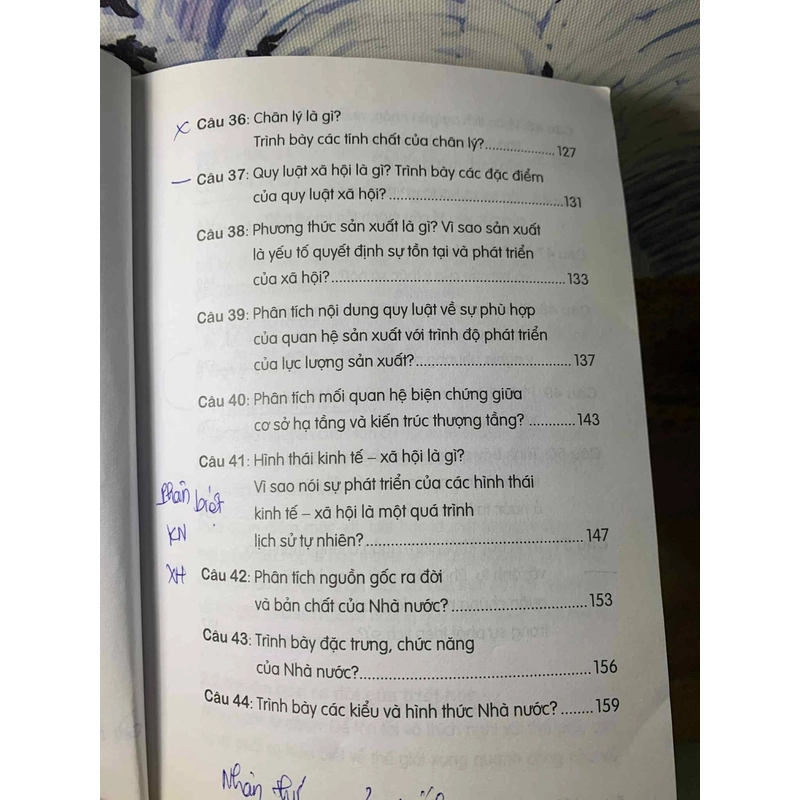 x Câu 36: Chân lý là gì?
Trình bày các tính chất của chân lý?....................127
— Câu 37: Quy luật xã hội là gì? Trình bày các đặc điểm
của quy luật xã hội?..................................................131
Câu 38: Phương thức sản xuất là gì? Vì sao sản xuất
là yếu tố quyết định sự tồn tại và phát triển
của xã hội?....................................................................133
Câu 39: Phân tích nội dung quy luật về sự phù hợp
của quan hệ sản xuất với trình độ phát triển
của lực lượng sản xuất?............................................137
Câu 40: Phân tích mối quan hệ biện chứng giữa
cơ sở hạ tầng và kiến trúc thượng tầng? ............143
Câu 41: Hình thái kinh tế – xã hội là gì?
Vì sao nói sự phát triển của các hình thái
phân biệt
kinh tế – xã hội là một quá trình
KN
lịch sử tự nhiên?..........................................................147
XH
Câu 42: Phân tích nguồn gốc ra đời
và bản chất của Nhà nước?....................................153
Câu 43: Trình bày đặc trưng, chức năng
của Nhà nước?.............................................................156
Câu 44: Trình bày các kiểu và hình thức Nhà nước?........159
Nhân